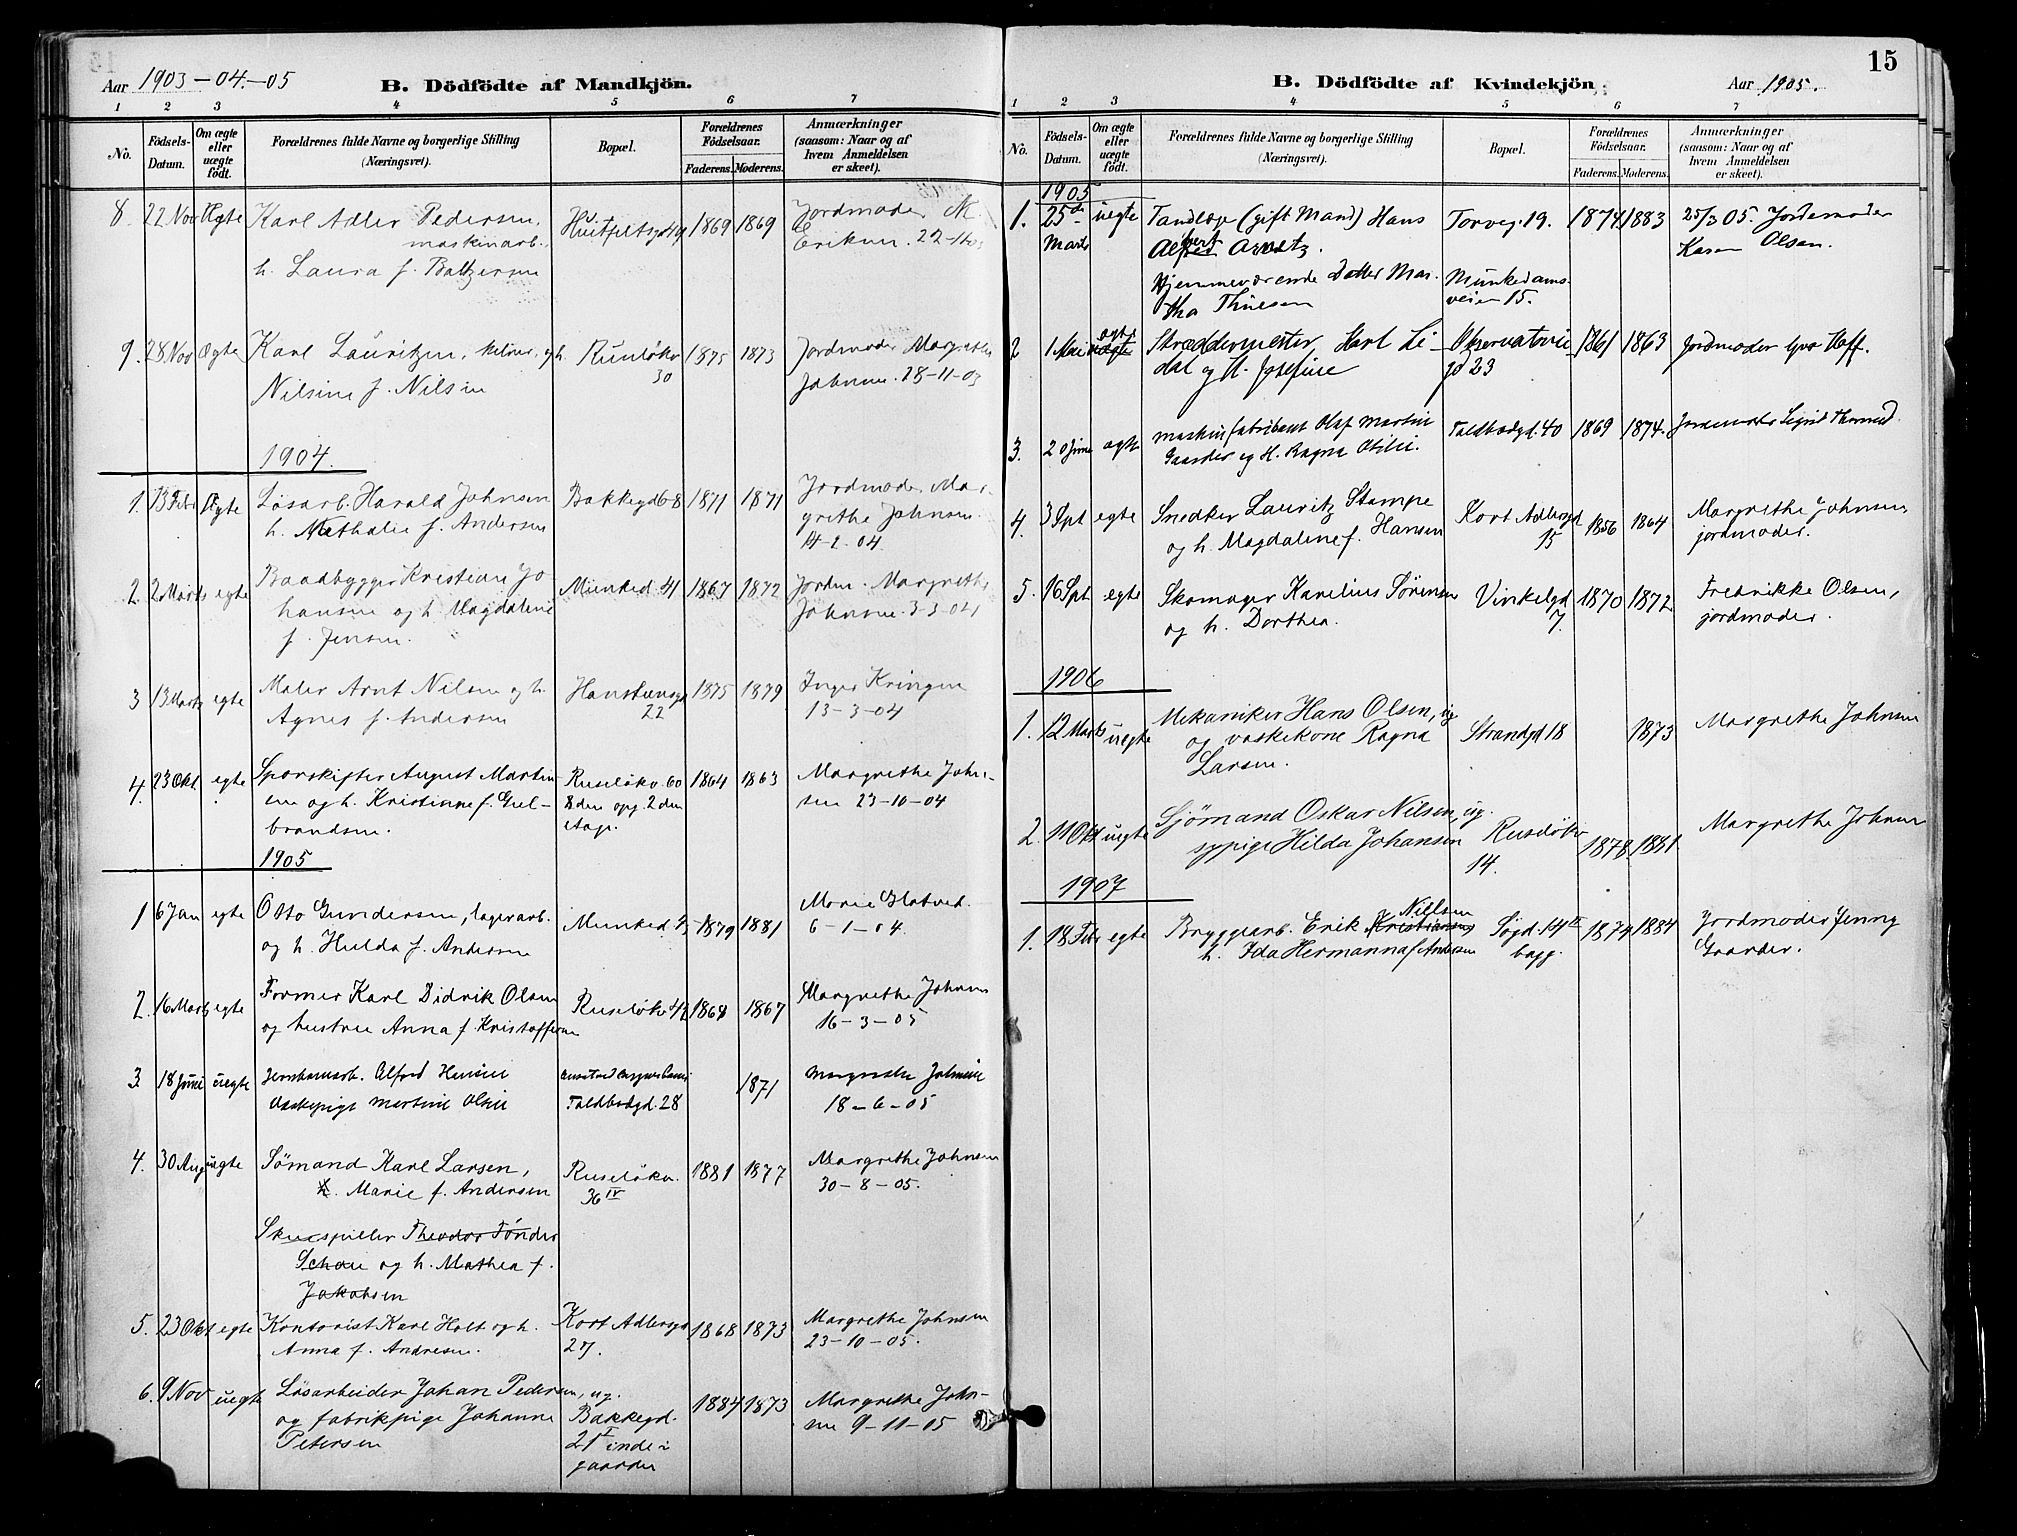 Aar 1903-04-05
B. Dödfödte af Mandkjön.
1 2 3 4 5 6 7
No.
Födsels-Datum.
Om ægte eller uægte födt.
Forældrenes fulde Navne og borgerlige Stilling
(Næringsvei).
Bopæl.
Forældrenes Födselsaar.
Faderens. Moderens.
Anmærkninger
(saasom: Naar og af
hvem Anmeldelsen
er skeet).
8 22 Nov Ægte Karl Adler Pedersen, 1869 1869 Jordmoder M.
maskinarb. Eriksen. 22-11-03
h. Laura f. Baltzersen
9. 28 Nov Ægte Karl Lauritzen, kelner, og h. Ruseløkv 1875 1873 Jordmoder Margrethe
30
Nilsine f. Nilsen Johnsen. 28-11-03
1904.
1. 13 Febr Ægte Løsarb. Harald Johnsen Bakkegd 68 1871 1871 Jordmoder Mar-
h. Nathalie f. Andersen grethe Johnsen.
14-2-04.
2. 2 Marts egte Baadbygger Kristian Jo Munked 41 1867 1872 Jordm. Margrethe
hansen og h. Magdalene Johnsen 3-3-04
f. Jensen.
3 13 Marts egte Maler Arnt Nilsen og h. Hansteensgd 1875 1879 Inger Kringen
22
Agnes f. Andersen 13-3-04
4. 23 Okt. egte Sporskifter August Martin Ruseløkv. 60 1864 1863 Margrethe John-
sen og h. Kristinne f. Gul- 8den opg. 2den sen 23-10-04
brandsen. etage.
1905
1 6 Jan egte Otto Gundersen, lagerarb. Munked 1879 1881 Marie
og h. Hulda f. Andersen 6-1-04.
2. 16 Marts egte Former Karl Didrik Olsen Ruseløkv 42 1868 1867 Margrethe Johnsen
og hustru Anna f. Kristoffersen 16-3-05
3. 18 Juni uegte Jernbanearb. Alfred Hansen 1871 Margrethe Johnsen
Vaskepige Martine Olsen Toldbodgd. 28 18-6-05
4. 30 Aug uegte Sømand Karl Larsen, Ruseløkv. 1881 1877 Margrethe Johnsen
h. Marie f. Andersen 36 IV 30-8-05.
Skuespiller Theodor Tønder
Schou og h. Mathea f.
Jakobsen
5. 23 Okt egte Kontorist Karl Holt og h. Kort Adlersgd 1868 1873 Margrethe Johnsen
Anna f. Andresen. 27. 23-10-05.
6. 9 Nov uegte Løsarbeider Johan Pedersen, ug. 1884 1873 Margrethe John-
og fabrikpige Johanne Bakkegd. sen 9-11-05
Petersen 21 I inde i
gaarden
15
B. Dödfödte af Kvindekjön.
Aar 1905.
1 2 3 4 5 6 7
No.
Födsels-Datum.
Om ægte eller uægte födt.
Forældrenes fulde Navne og borgerlige Stilling
(Næringsvei).
Bopæl.
Forældrenes Födselsaar.
Faderens. Moderens.
Anmærkninger
(saasom: Naar og af
hvem Anmeldelsen
er skeet).
1905
1. 25de uegte Tandlæge (gift Mand) Hans Torvej. 19. 1874 1883 25/3 05. Jordemoder
Marts Karen Olsen.
Hjemmeværende Datter Mar- Munkedams-
tha Thuesen veien 15.
2 1 Mai egte uægte Skræddermester Hart Li- Observatorie 1861 1863 Jordmoder Hoff.
dal og H. Josefine gd 23
3. 20 Juni egte maskinfabrikant Olaf Martin Toldbodgd. 40 1869 1874. Jordmoder Sigrid
Gaarder og H. Ragna Otilie.
4. 3 Spt egte Snedker Lauritz Stampe Kort Adlersgd 1856 1864 Margrethe Johnsen,
og h. Magdalene f. Hansen 15 jordmoder.
5. 16 Spt egte Skomager Karelius Sørensen Vinkelgd 1870 1872 Fredrikke Olsen,
og h. Dorthea. 7. jordmoder.
1906
1. 12 Marts uegte Mekaniker Hans Olsen, ug Strandgd 18 1873 Margrethe Johnsen
og vaskekone Ragna
Larsen.
2. 11 Okt uegte Sjømand Oskar Nilsen, ug. Ruseløkv 1878 1881 Margrethe Johnsen
sypige Hilda Johansen 14.
1907
1. 18 Febr egte Bryggearb. Erik Kristiansen Nillsen Søgd. 14 II 1874 1884 Jordmoder Jenny
h. Ida Hermanna f Andersen bagg. Gaarder.